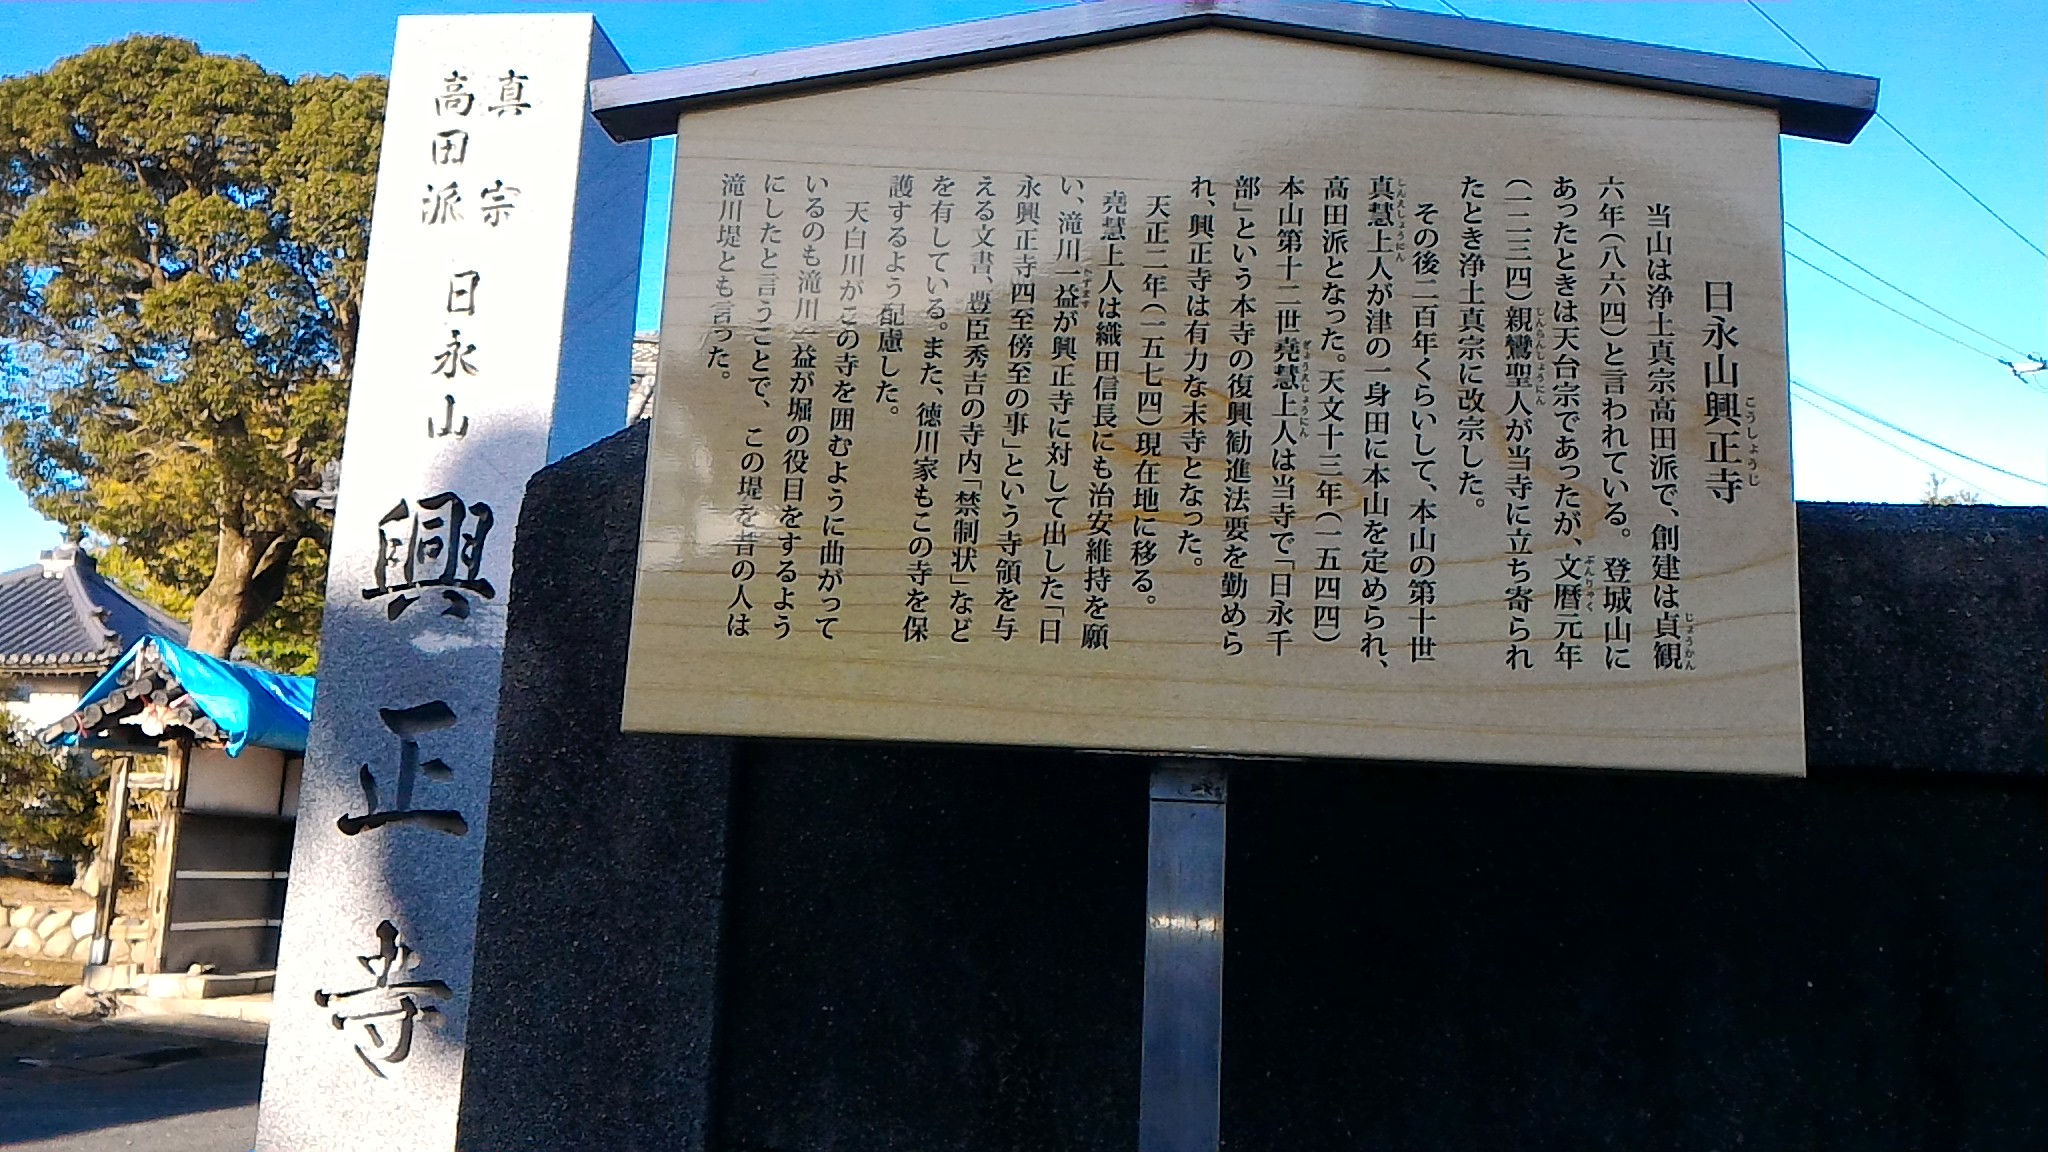 日永山興正寺
こうしょうじ
当山は浄土真宗高田派で、創建は貞観
じょうかん
六年(八六四)と言われている。登城山に
あったときは天台宗であったが、文暦元年
ぶんりゃく
(一二三四)親鸞聖人が当寺に立ち寄られ
しんらんしょうにん
たとき浄土真宗に改宗した。
その後二百年くらいして、本山の第十世
真慧上人が津の一身田に本山を定められ、
しんえしょうにん
高田派となった。天文十三年(一五四四)
本山第十二世堯慧上人は当寺で「日永千
ぎょうえしょうにん
部」という本寺の復興勧進法要を勤めら
れ、興正寺は有力な末寺となった。
天正二年(一五七四)現在地に移る。
堯慧上人は織田信長にも治安維持を願
い、滝川一益が興正寺に対して出した「日
かずます
永興正寺四至傍至の事」という寺領を与
える文書、豊臣秀吉の寺内「禁制状」など
を有している。また、徳川家もこの寺を保
護するよう配慮した。
天白川がこの寺を囲むように曲がって
いるのも滝川一益が堀の役目をするよう
にしたと言うことで、この堤を昔の人は
滝川堤とも言った。
真宗
高田派
日永山
興正寺